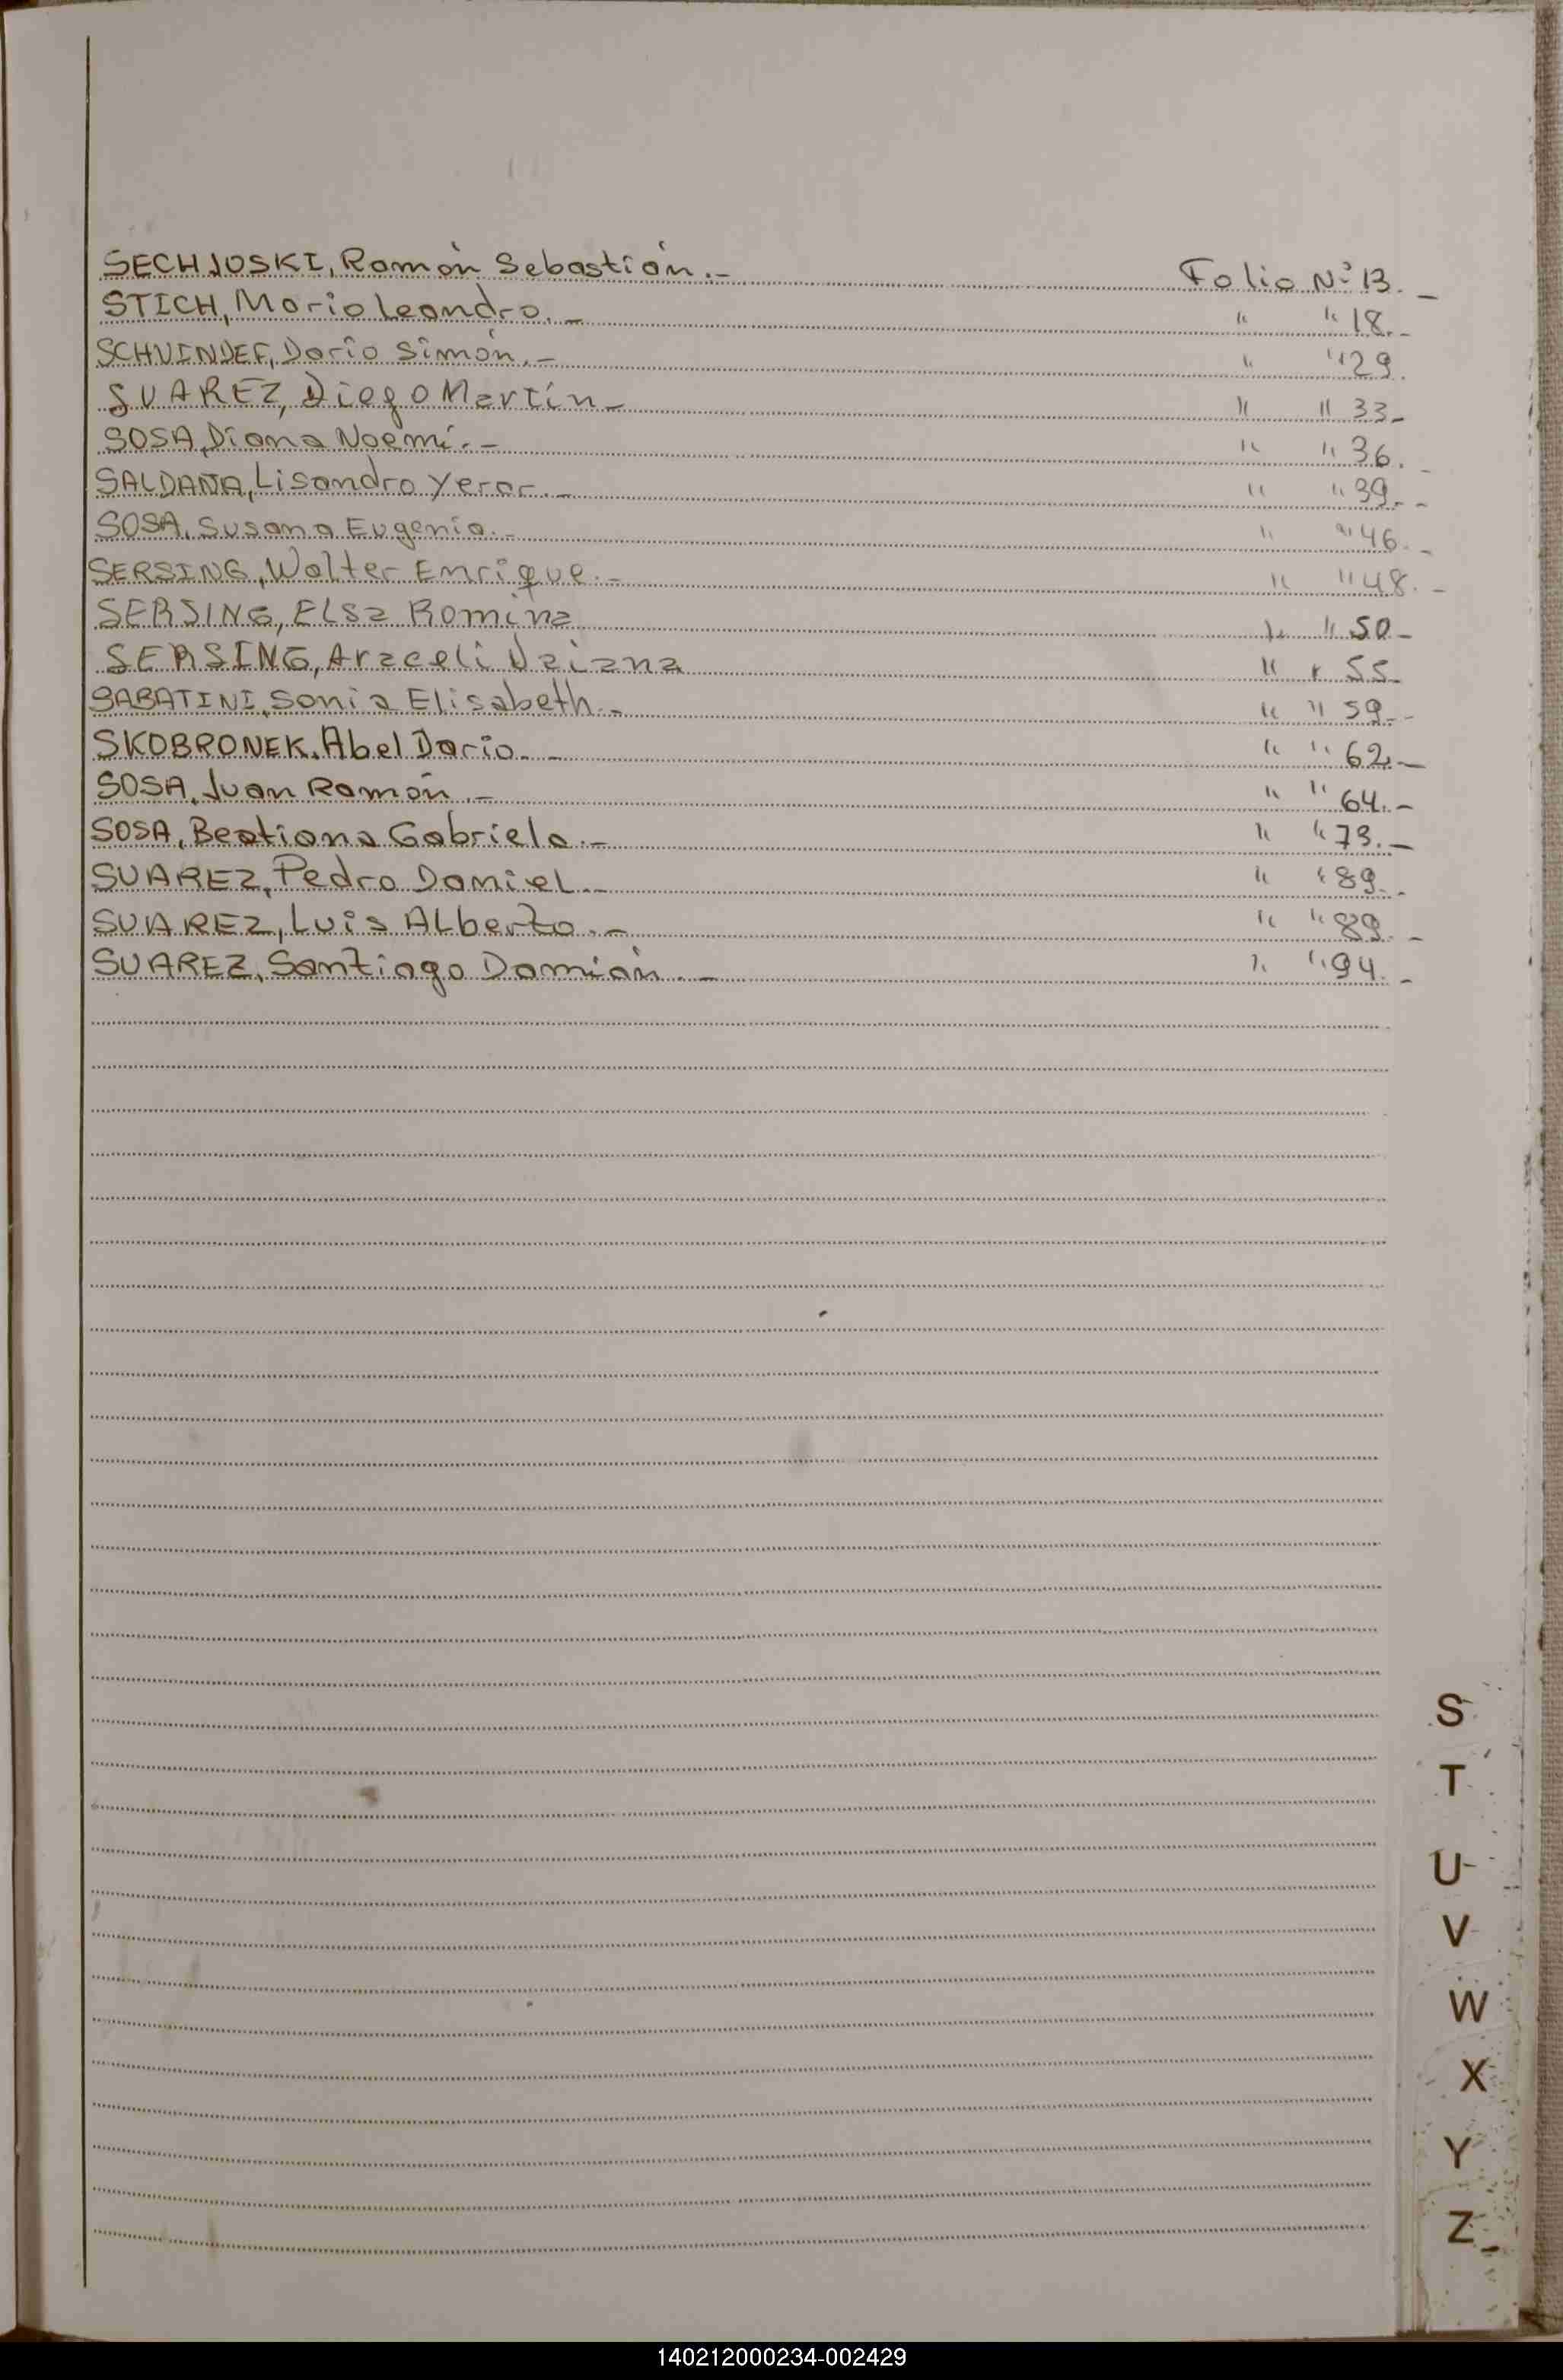 SECHJOSKI, Ramón Sebastián.- Folio Nº 13.-
STICH, Mario Leandro.- " " 18.-
SCHVINDEF, Dario Simón.- " " 29.
SUAREZ, Diego Martín- " " 33-
SOSA, Diana Noemí.- " " 36.-
SALDAÑA, Lisandro Yeror.- " " 39.-
SOSA, Susana Eugenia.- " " 46.-
SERSING, Walter Enrique.- " " 48.-
SERSING, Elsa Romina " " 50-
SERSING, Araceli Daiana " " 55-
SABATINI, Sonia Elisabeth.- " " 59.-
SKOBRONEK, Abel Dario.- " " 62.-
SOSA, Juan Ramón.- " " 64.-
SOSA, Beatiana Gabriela.- " " 73.-
SUAREZ, Pedro Daniel.- " " 89.-
SUAREZ, Luis ALberto.- " " 89.-
SUAREZ, Santiago Damián.- " " 94.-
S
T
U
V
W
X
Y
Z
140212000234-002429